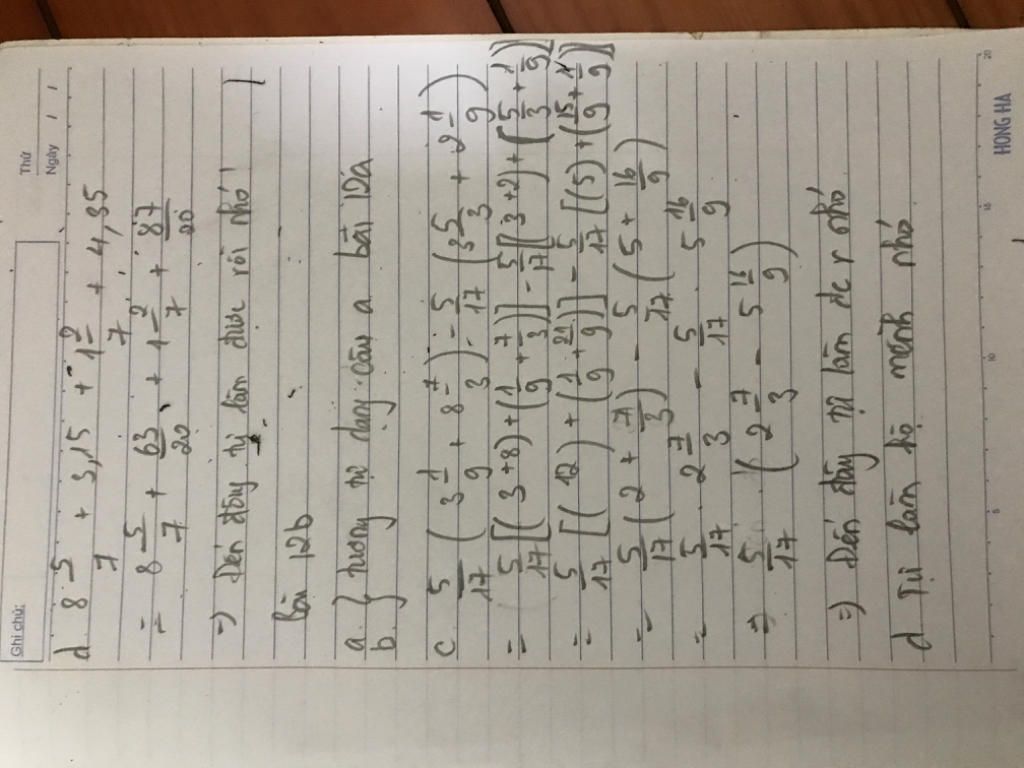 Ghi chú:
Thứ
Ngày / /
d. 8 5/7 + 3,15 + 1 2/7 + 4,35
= 8 5/7 + 63/20 + 1 2/7 + 87/20
=) Đến đây tự làm được rồi nhó!
Bài 12b
a.
b. } tương tự dạng câu a bài 12a
c 5/17 (3 1/9 + 8 7/3) - 5/17 (3 5/3 + 2 1/9)
= 5/17 [(3+8) + (1/9 + 7/3)] - 5/17 [(3+2) + (5/3 + 1/9)]
= 5/17 [(12) + (1/9 + 21/9)] - 5/17 [(5) + (15/9 + 1/9)]
= 5/17 (2 + 7/3) - 5/17 (5 + 16/9)
= 5/17 2 7/3 - 5/17 5 16/9
=) 5/17 (2 7/3 - 5 16/9)
=) Đến đây tự làm đc r nhó
d Tự làm hộ mềnh nhó
5 10 15 20
HONG HA